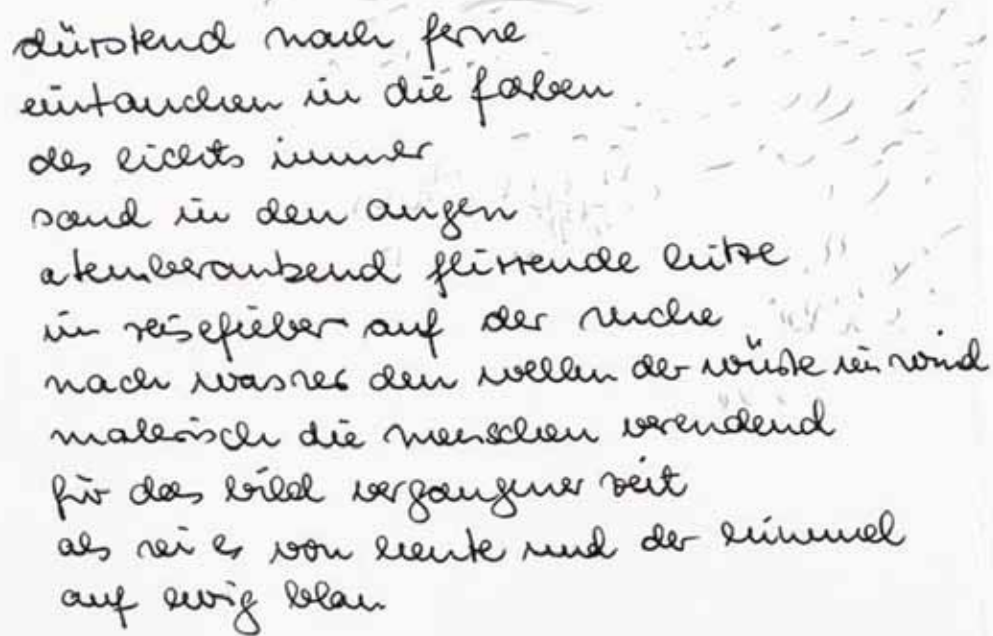 dürstend nach ferne
eintauchen in die farben
des lichts immer
sand in den augen
atemberaubend flirrende hitze
im reisefieber auf der suche
nach wasser den wellen der wüste im wind
malerisch die menschen verendend
für das bild vergangener zeit
als sei es von heute und der himmel
auf ewig blau